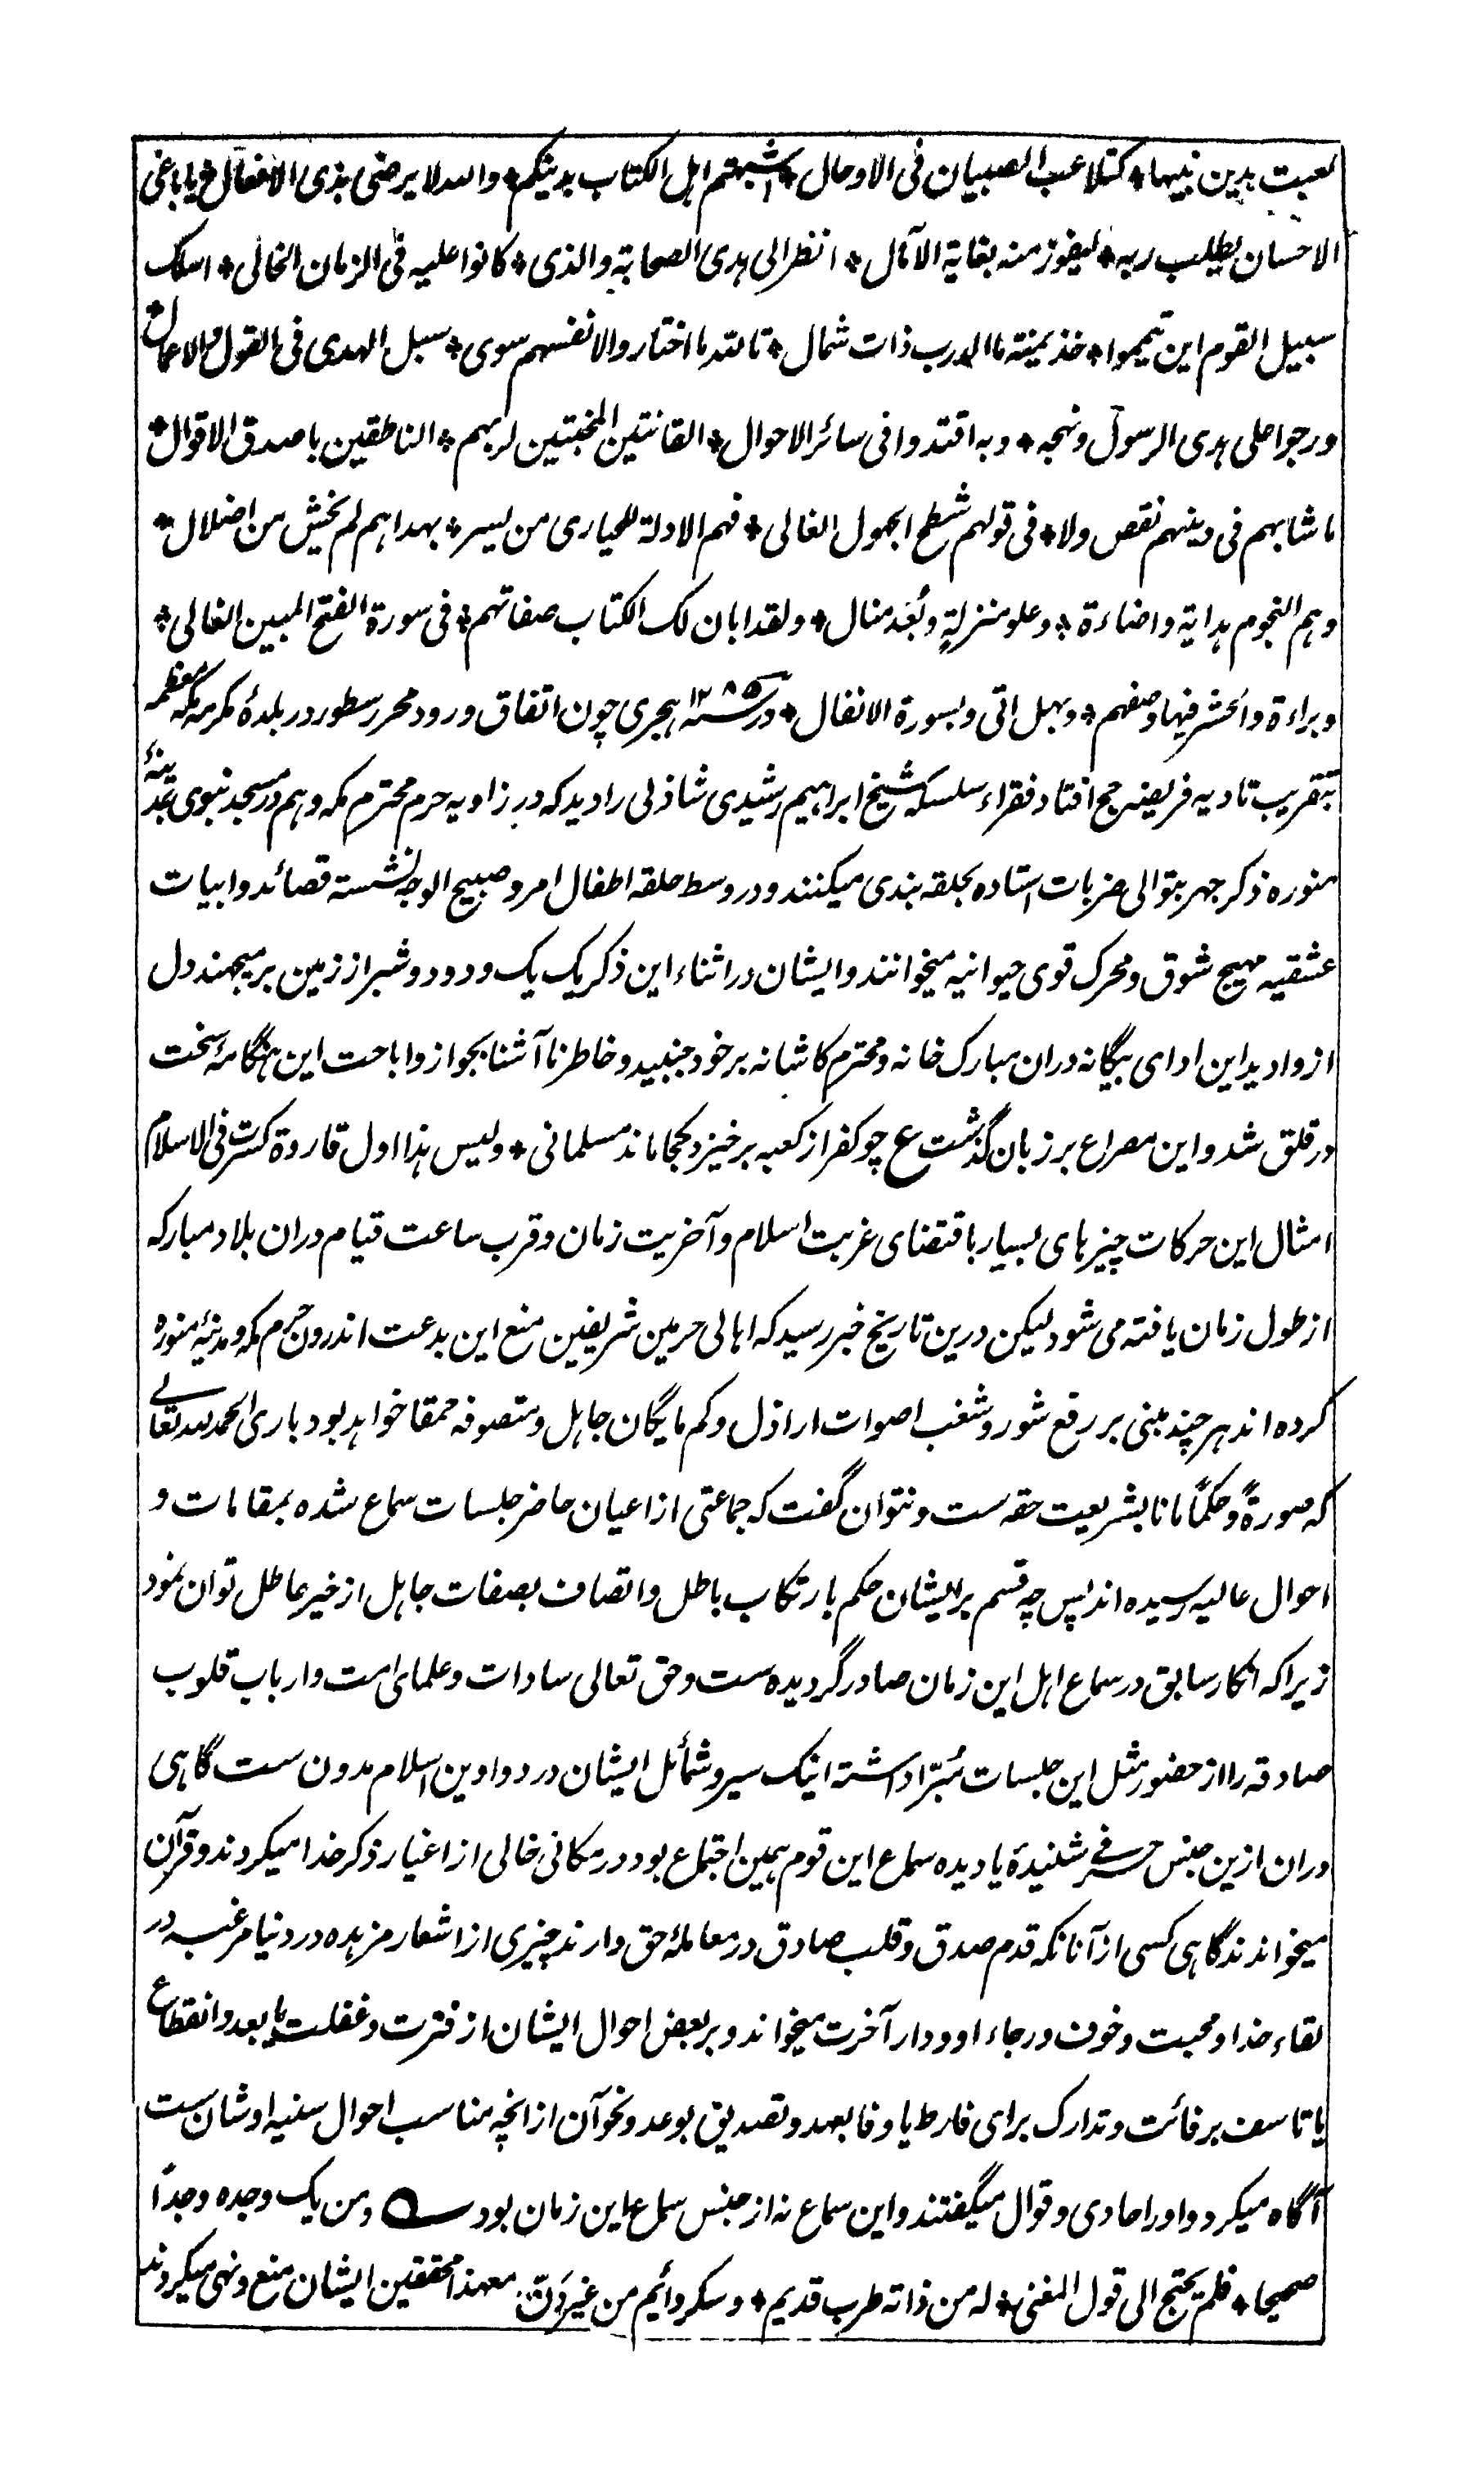 لعبت بدین نبیها * کتلاعب الصبیان فی الاوحال * اشبهتم اهل الکتاب بدینکم * والله لا یرضی بذی الافعال * یا باغی
الاحسان یطلب ربه * لیفوز منه بغایة الآمال * انظر الی هدی الصحابة والذی * کانوا علیه فی الزمان الخالی * اسلک
سبیل القوم این تیمموا * خذ یمنة ما الدرب ذات شمال * تالله ما اختاروا لانفسهم سوی * سبل الهدی فی القول والاعمال *
درجوا علی هدی الرسول ونهجه * وبه اقتدوا فی سائر الاحوال * القانتین المخبتین لربهم * الناطقین باصدق الاقوال *
ما شابهم فی دینهم نقص ولا * فی قولهم شطح الجهول الغالی * فهم الادلة للحیاری من یسر * بهداهم لم یخش من اضلال *
وهم النجوم هدایة واضاءة * وعلو منزلةٍ وبُعْد منال * ولقد ابان لک الکتاب صفاتهم * فی سورة الفتح المبین الغالی *
وبراءة والحشر فیها وصفهم * وبهل اتی وبسورة الانفال * در سنه ۱۲۸۵ هجری چون اتفاق ورود محرر سطور در بلدهٔ مکرمه مکه معظمه
بتقریب تادیه فریضه حج افتاد فقراء سلسله شیخ ابراهیم رشیدی شاذلی را دید که در زاویه حرم محترم مکه وهم در مسجد نبوی بمدینهٔ
منوره ذکر جهر بتوالی ضربات استاده بحلقه بندی میکنند و در وسط حلقه اطفال امرد صبیح الوجه نشسته قصائد و ابیات
عشقیه مهیج شوق و محرک قوی حیوانیه میخوانند و ایشان در اثناء این ذکر یک یک و دو دو شبر از زمین برمیجهند دل
از وادید این ادای بیگانه دران مبارک خانه و محترم کاشانه بر خود جنبید و خاطر ناآشنا بجواز و اباحت این هنگامهٔ سخت
در قلق شد و این مصراع بر زبان گذشت ع چو کفر از کعبه برخیزد کجا ماند مسلمانی * ولیس هذا اول قاروة کسرت فی الاسلام
امثال این حرکات چیزهای بسیار باقتضای غربت اسلام و آخریت زمان و قرب ساعت قیام دران بلاد مبارکه
از طول زمان یافته می شود لیکن درین تاریخ خبر رسید که اهالی حرمین شریفین منع این بدعت اندرون حرم مکه و مدینهٔ منوره
کرده اند هر چند مبنی بر رفع شور و شغب اصوات اراذل و کم مایگان جاهل و متصوفه حمقا خواهد بود باری الحمد لله تعالی
که صورةً وحکمًا مانا بشریعت حقه ست و نتوان گفت که جماعتی از اعیان حاضر جلسات سماع شده بمقامات و
احوال عالیه رسیده اند پس چه قسم بر ایشان حکم بارتکاب باطل و اتصاف بصفات جاهل از خیر عاطل توان نمود
زیرا که انکار سابق در سماع اهل این زمان صادر گردیده ست و حق تعالی سادات و علمای امت و ارباب قلوب
صادقه را از حضور مثل این جلسات مُبَرّا داشته اینک سیر و شمائل ایشان در دواوین اسلام مدون ست گاهی
دران ازین جنس حرفی شنیدهٔ یا دیده سماع این قوم همین اجتماع بود در مکانی خالی از اغیار ذکر خدا میکردند و قرآن
میخواندند گاهی کسی از آنانکه قدم صدق و قلب صادق در معاملهٔ حق دارند چیزی از اشعار مزهده در دنیا مرغبه در
لقاء خدا و محبت و خوف و رجاء او و دار آخرت میخواند و بر بعض احوال ایشان از فترت و غفلت یا بعد و انقطاع
یا تاسف بر فائت و تدارک برای فارط یا وفا بعهد و تصدیق بوعد و نحو آن از انچه مناسب احوال سنیه اوشان ست
آگاه میکرد و او را حادی و قوال میگفتند و این سماع نه از جنس سماع این زمان بود ؎ ومن یک وجده وجداً
صحیحا * فلم یحتج الی قول المغنی * له من ذاته طرب قدیم * وسکر دائم من غیر دَنّ. معهذا محققین ایشان منع و نهی میکردند